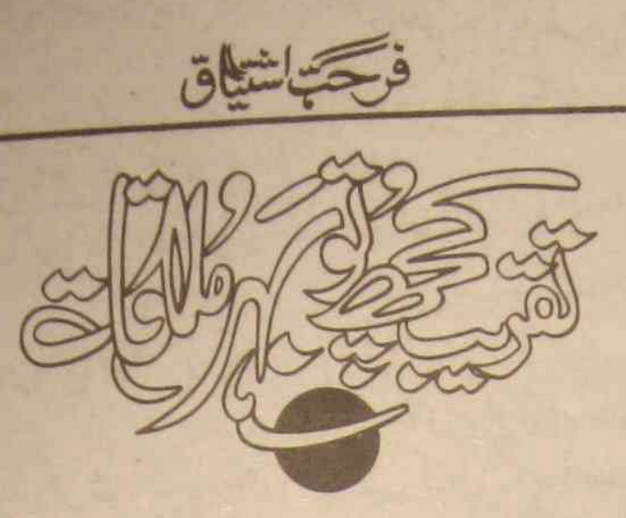 فرحت اشتیاق
تقریب کچھ تو بہر ملاقات چاہیے